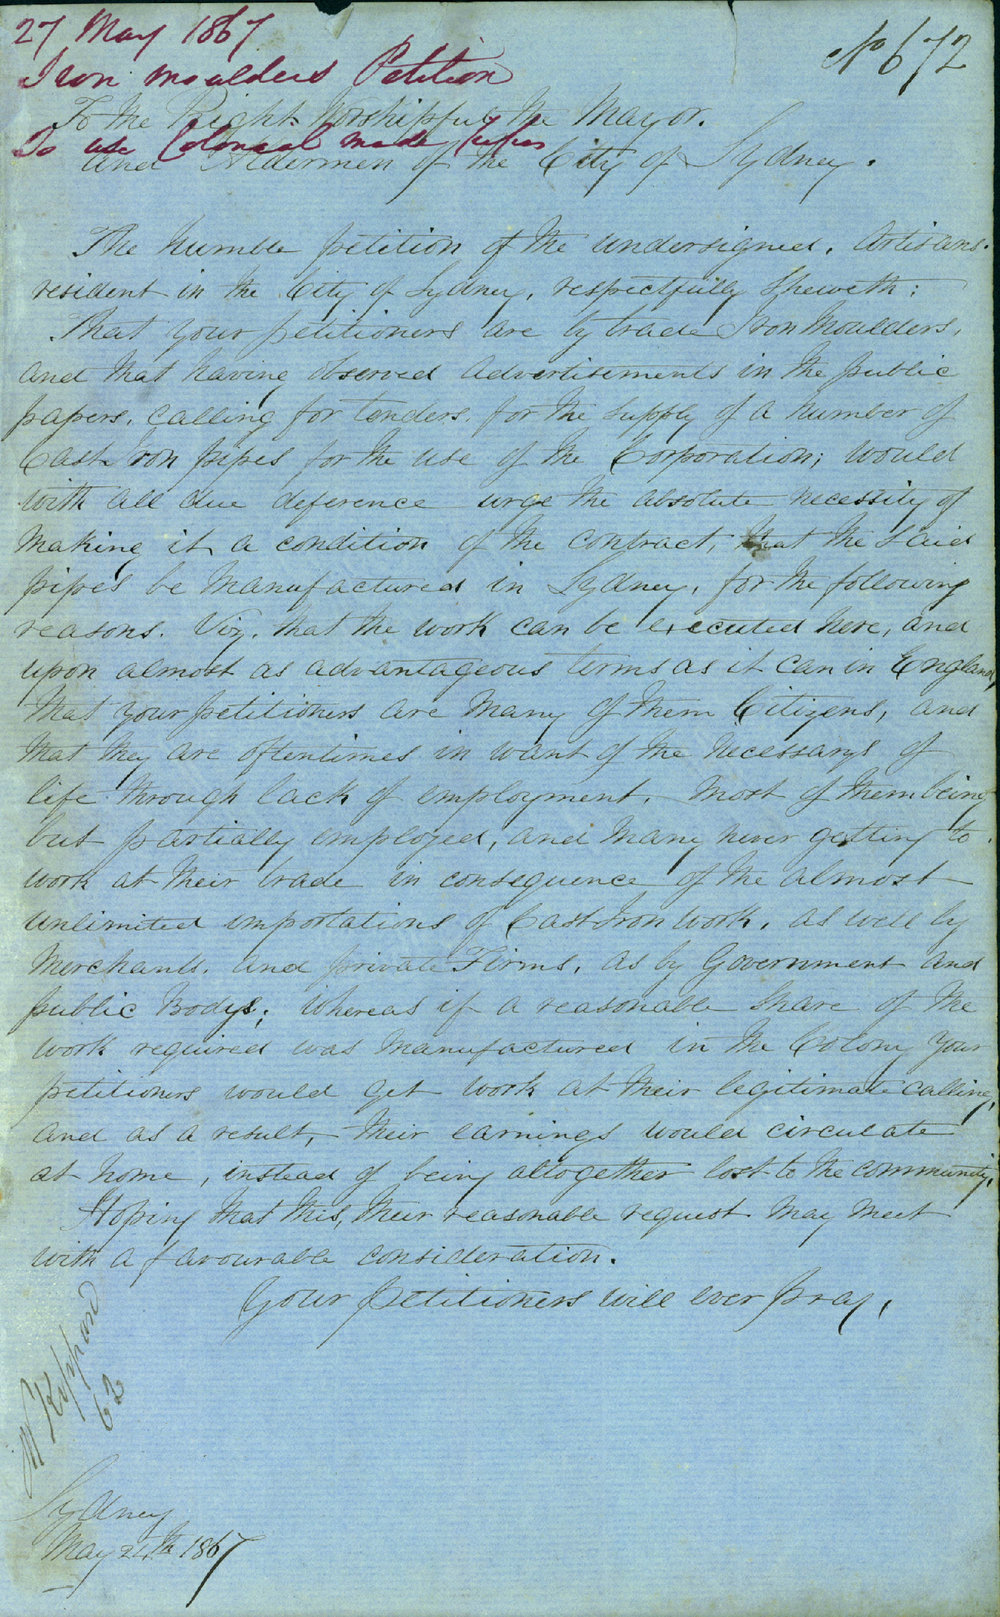 27 May 1867
No 672
Iron Moulders Petition
To the Right Worshipful the Mayor.
To use Colonial made
and Aldermen of the City of Sydney.
The humble petition of the undersigned, Artisans.
resident in the City of Sydney, respectfully Sheweth:
That your petitioners are by trade Iron Moulders,
and that having observed advertisements in the public
papers, calling for tenders, for the supply of a number of
Cast Iron pipes for the use of the Corporation; would
with all due deference urge the absolute necessity of
making it a condition of the contract, that the said
pipes be manufactured in Sydney, for the following
reasons. Viz, that the work can be executed here, and
upon almost as advantageous terms as it can in England,
that your petitioners are many of them Citizens, and
that they are oftentimes in want of the necessarys of
life through lack of employment. Most of them being
but partially employed, and many never getting to
work at their trade in consequence of the almost
unlimited importations of Cast Iron work, as well by
Merchants. and private Firms, as by Government and
public Bodys; whereas if a reasonable share of the
work required was manufactured in the Colony your
petitioners would get work at their legitimate calling,
and as a result, their earnings would circulate
at home, instead of being altogether lost to the community.
Hoping that this, their reasonable request may meet
with a favourable consideration.
Your petitioners will ever pray,
62
Sydney
May 24th 1867